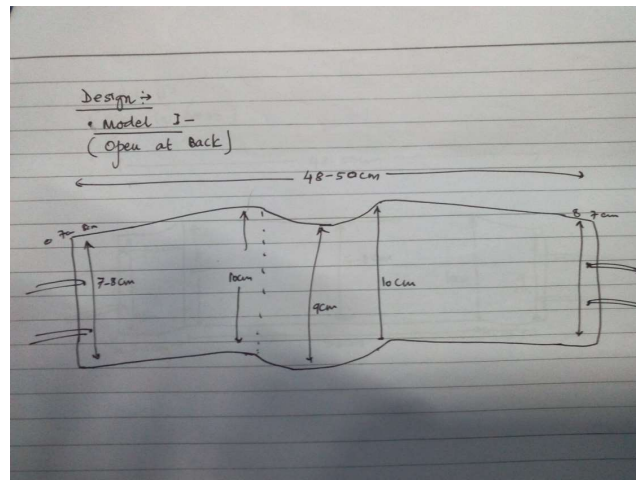 Design :→
• Model I-
(Open at Back)
48-50cm
7-8cm
10cm
9cm
10cm
7cm